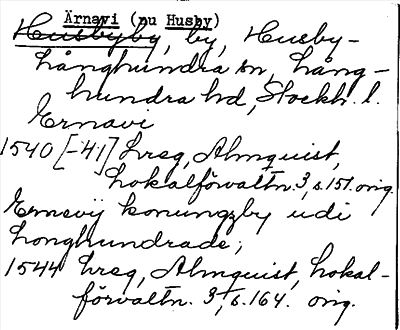 Ärnavi (nu Husby)
Husbyby, by, Husby-
Långhundra sn, Lång-
hundra hd, Stockh. l.
Ernavi
1540 [-41] hreg, Almquist,
Lokalförvaltn. 3, s. 151. orig.
Ernevij konungzby udi
Longhundrade;
1544 hreg, Almquist, Lokal-
förvaltn. 3, s. 164. orig.